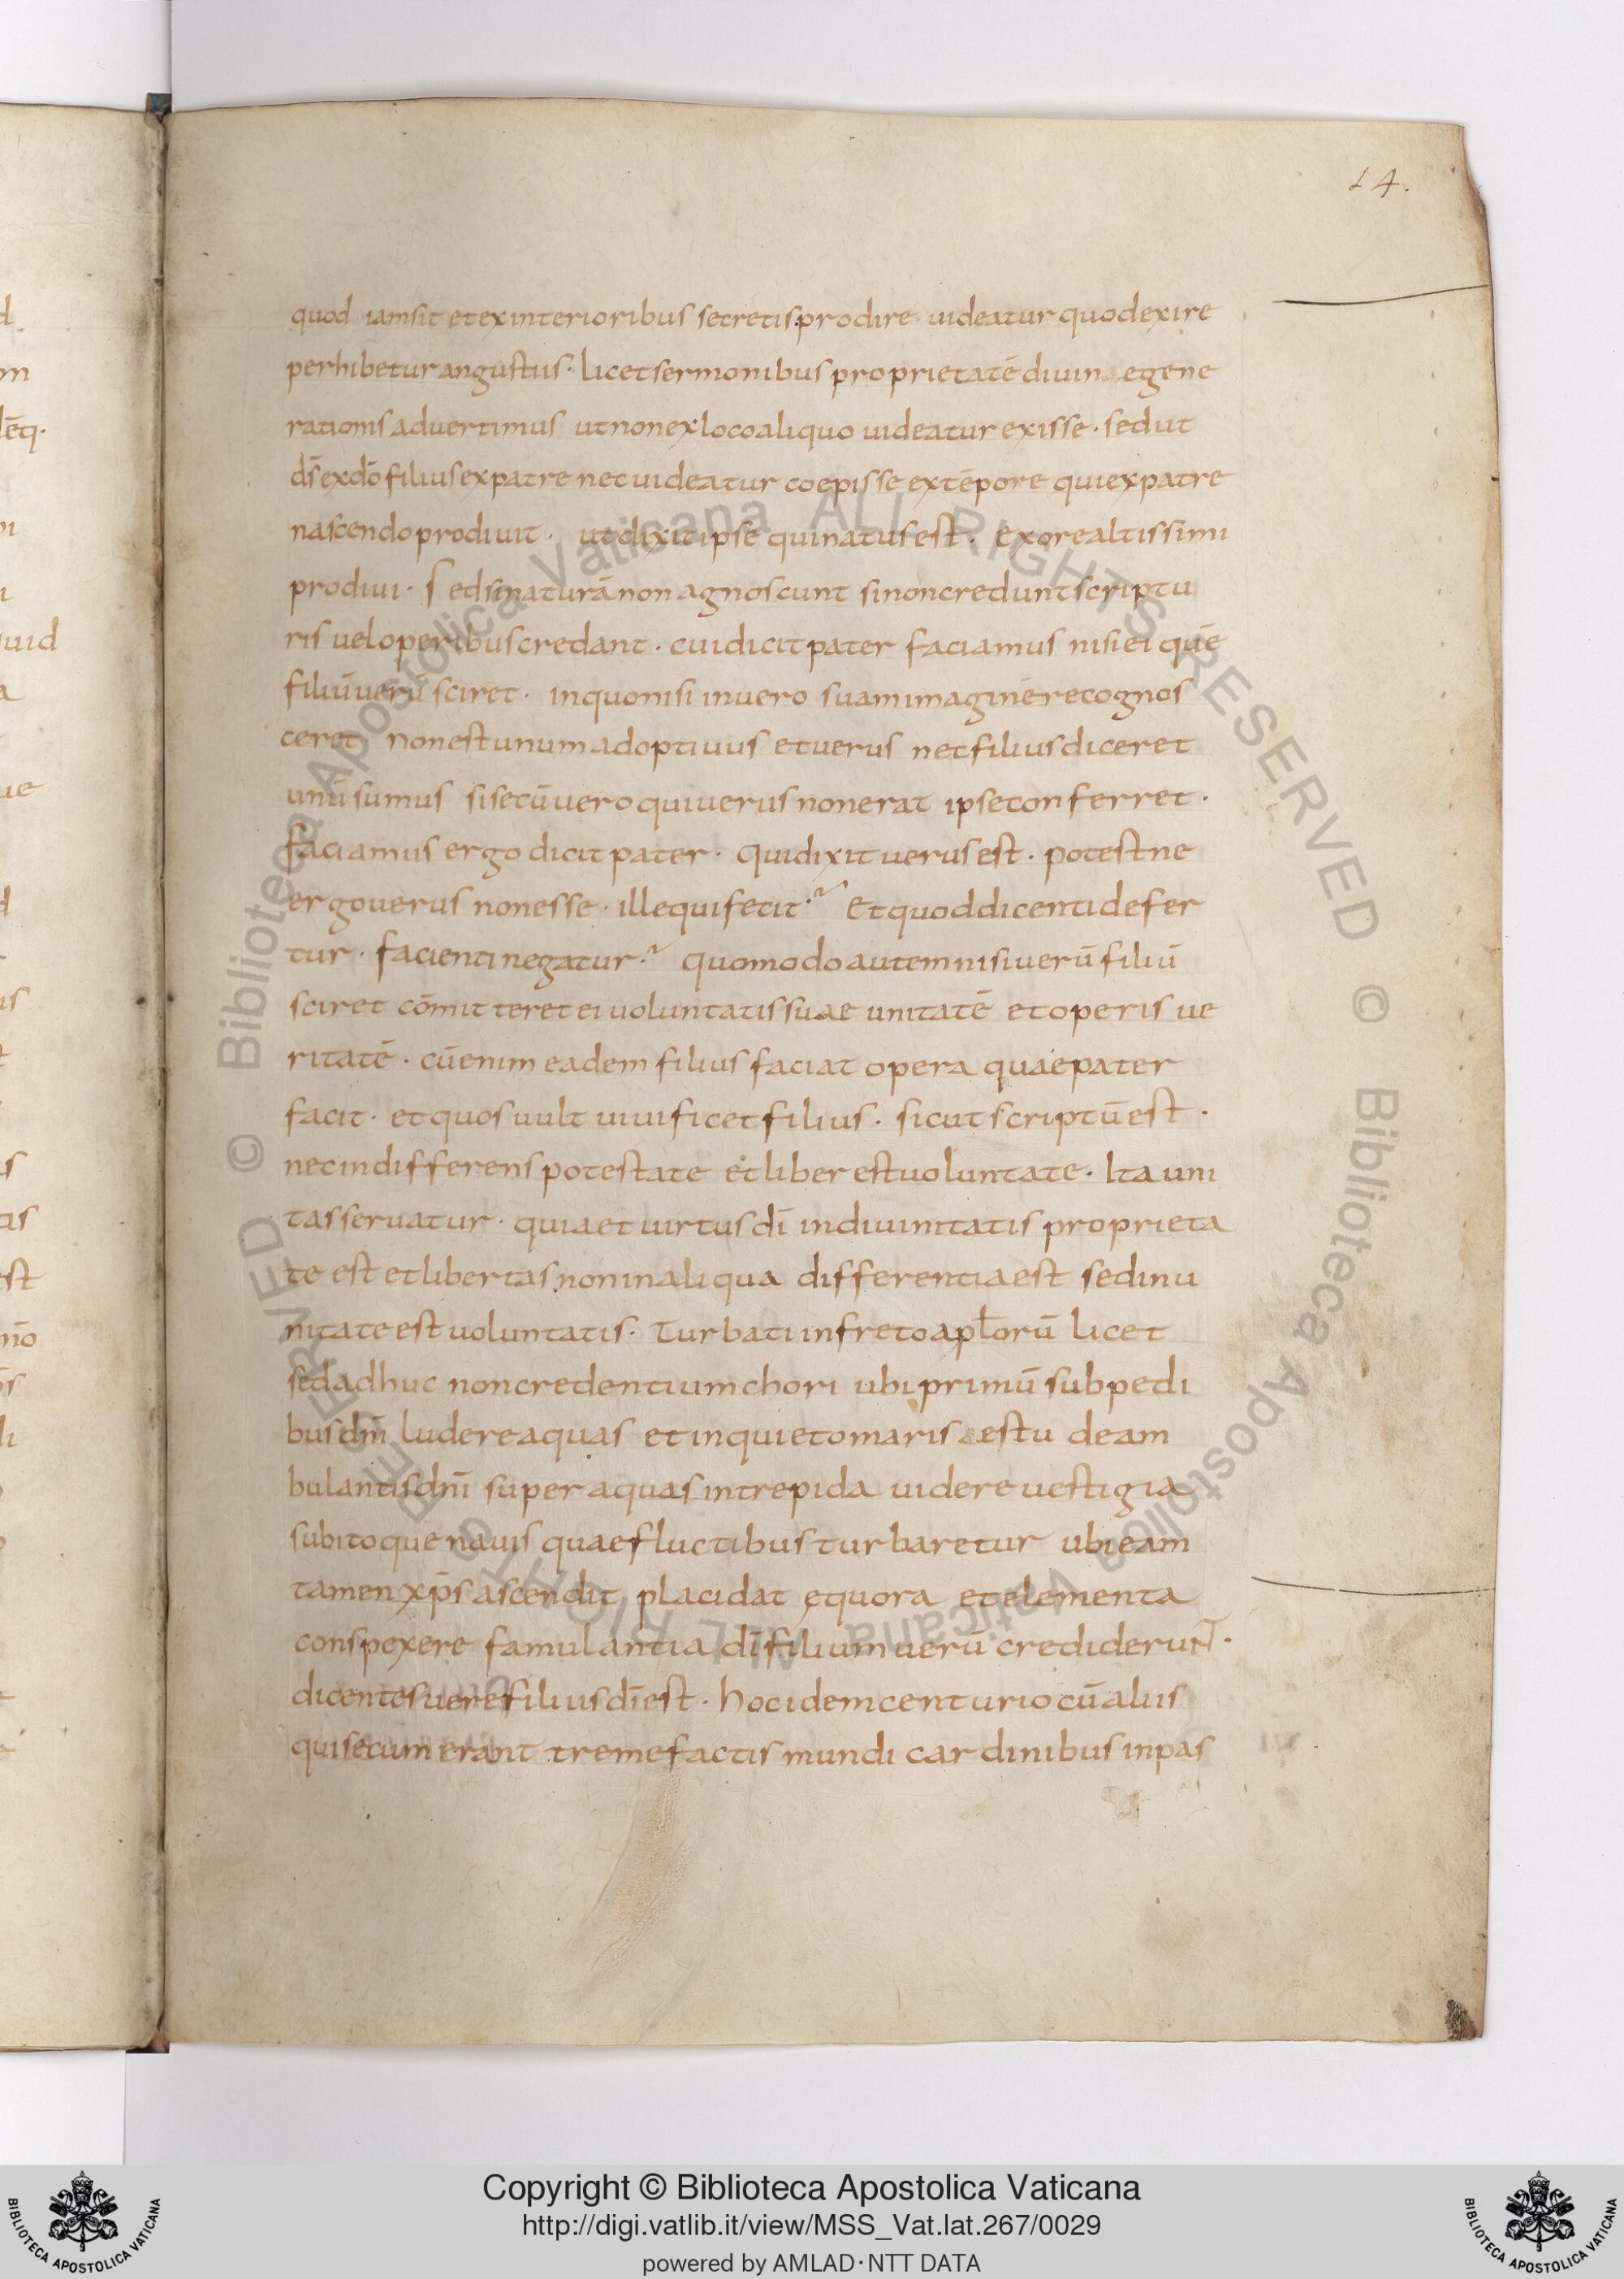 14.
quod iamsit etexinterioribus secretisprodire uideatur quodexire
perhibetur angustus· licetsermonibus proprietatē diuinaegene
rationis aduertimus utnonexlocoaliquo uideatur exisse· sedut
d̄s exdō filiusexpatre necuideatur coepisse extēpore quiexpatre
nascendoprodiuit· utdixitipse quinatusest· exorealtissimi
prodiui· Sedsinaturā non agnoscunt sinoncreduntscriptu
ris ueloperibuscredant· cuidicitpater faciamus nisiei quē
filiūuerū sciret· inquonisi inuero suamimaginērecognos
ceret nonestunumadoptiuus etuerus necfiliusdiceret
unū sumus sisecūuero quiuerusnonerat ipseconferret·
faciamus ergo dicit pater· quidixituerusest· potestne
ergouerus nonesse· illequifecit· Etquoddicentidefer
tur· facientinegatur· quomodoautemnisiuerū filiū
sciret cōmitteret ei uoluntatissuae unitatē etoperis ue
ritatē· cūenim eadem filius faciat opera quaepater
facit· etquosuult uiuificetfilius· sicutscriptūest·
necindifferenspotestate etliber estuoluntate· Ita uni
tasseruatur· quiaetuirtus dī indiuinitatis proprieta
te est etlibertasnoninaliqua differentiaest sedinu
nitateestuoluntatis· Turbatiinfretoapl̄orū licet
sedadhuc noncredentiumchori ubiprimū subpedi
bus dnī ludereaquas etinquietomaris aestu deam
bulantisdnī superaquasintrepida uidereuestigia
subitoquenauis quaefluctibusturbaretur ubieam
tamen xp̄s ascendit placidat ęquora etelementa
conspexere famulantia dī filiumuerū crediderunt·
dicentesuerefilius dīest· hocidemcenturiocūaliis
quisecum erant tremefactis mundi cardinibus inpas
Copyright © Biblioteca Apostolica Vaticana
http://digi.vatlib.it/view/MSS_Vat.lat.267/0029
powered by AMLAD·NTT DATA
BIBLIOTECA APOSTOLICA VATICANA
BIBLIOTECA APOSTOLICA VATICANA
Biblioteca Apostolica Vaticana ALL RIGHTS RESERVED © Biblioteca Apostolica Vaticana ALL RIGHTS RESERVED ©